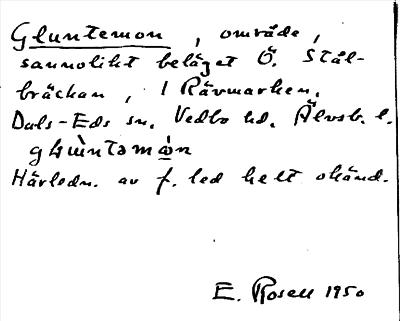 Gluntemon, område,
sannolikt beläget Ö. Stål-
bräckan, i Rävmarken.
Dals-Eds sn. Vedbo hd. Älvsb. l.
Härledn. av f. led helt okänd.
E. Rosell 1950